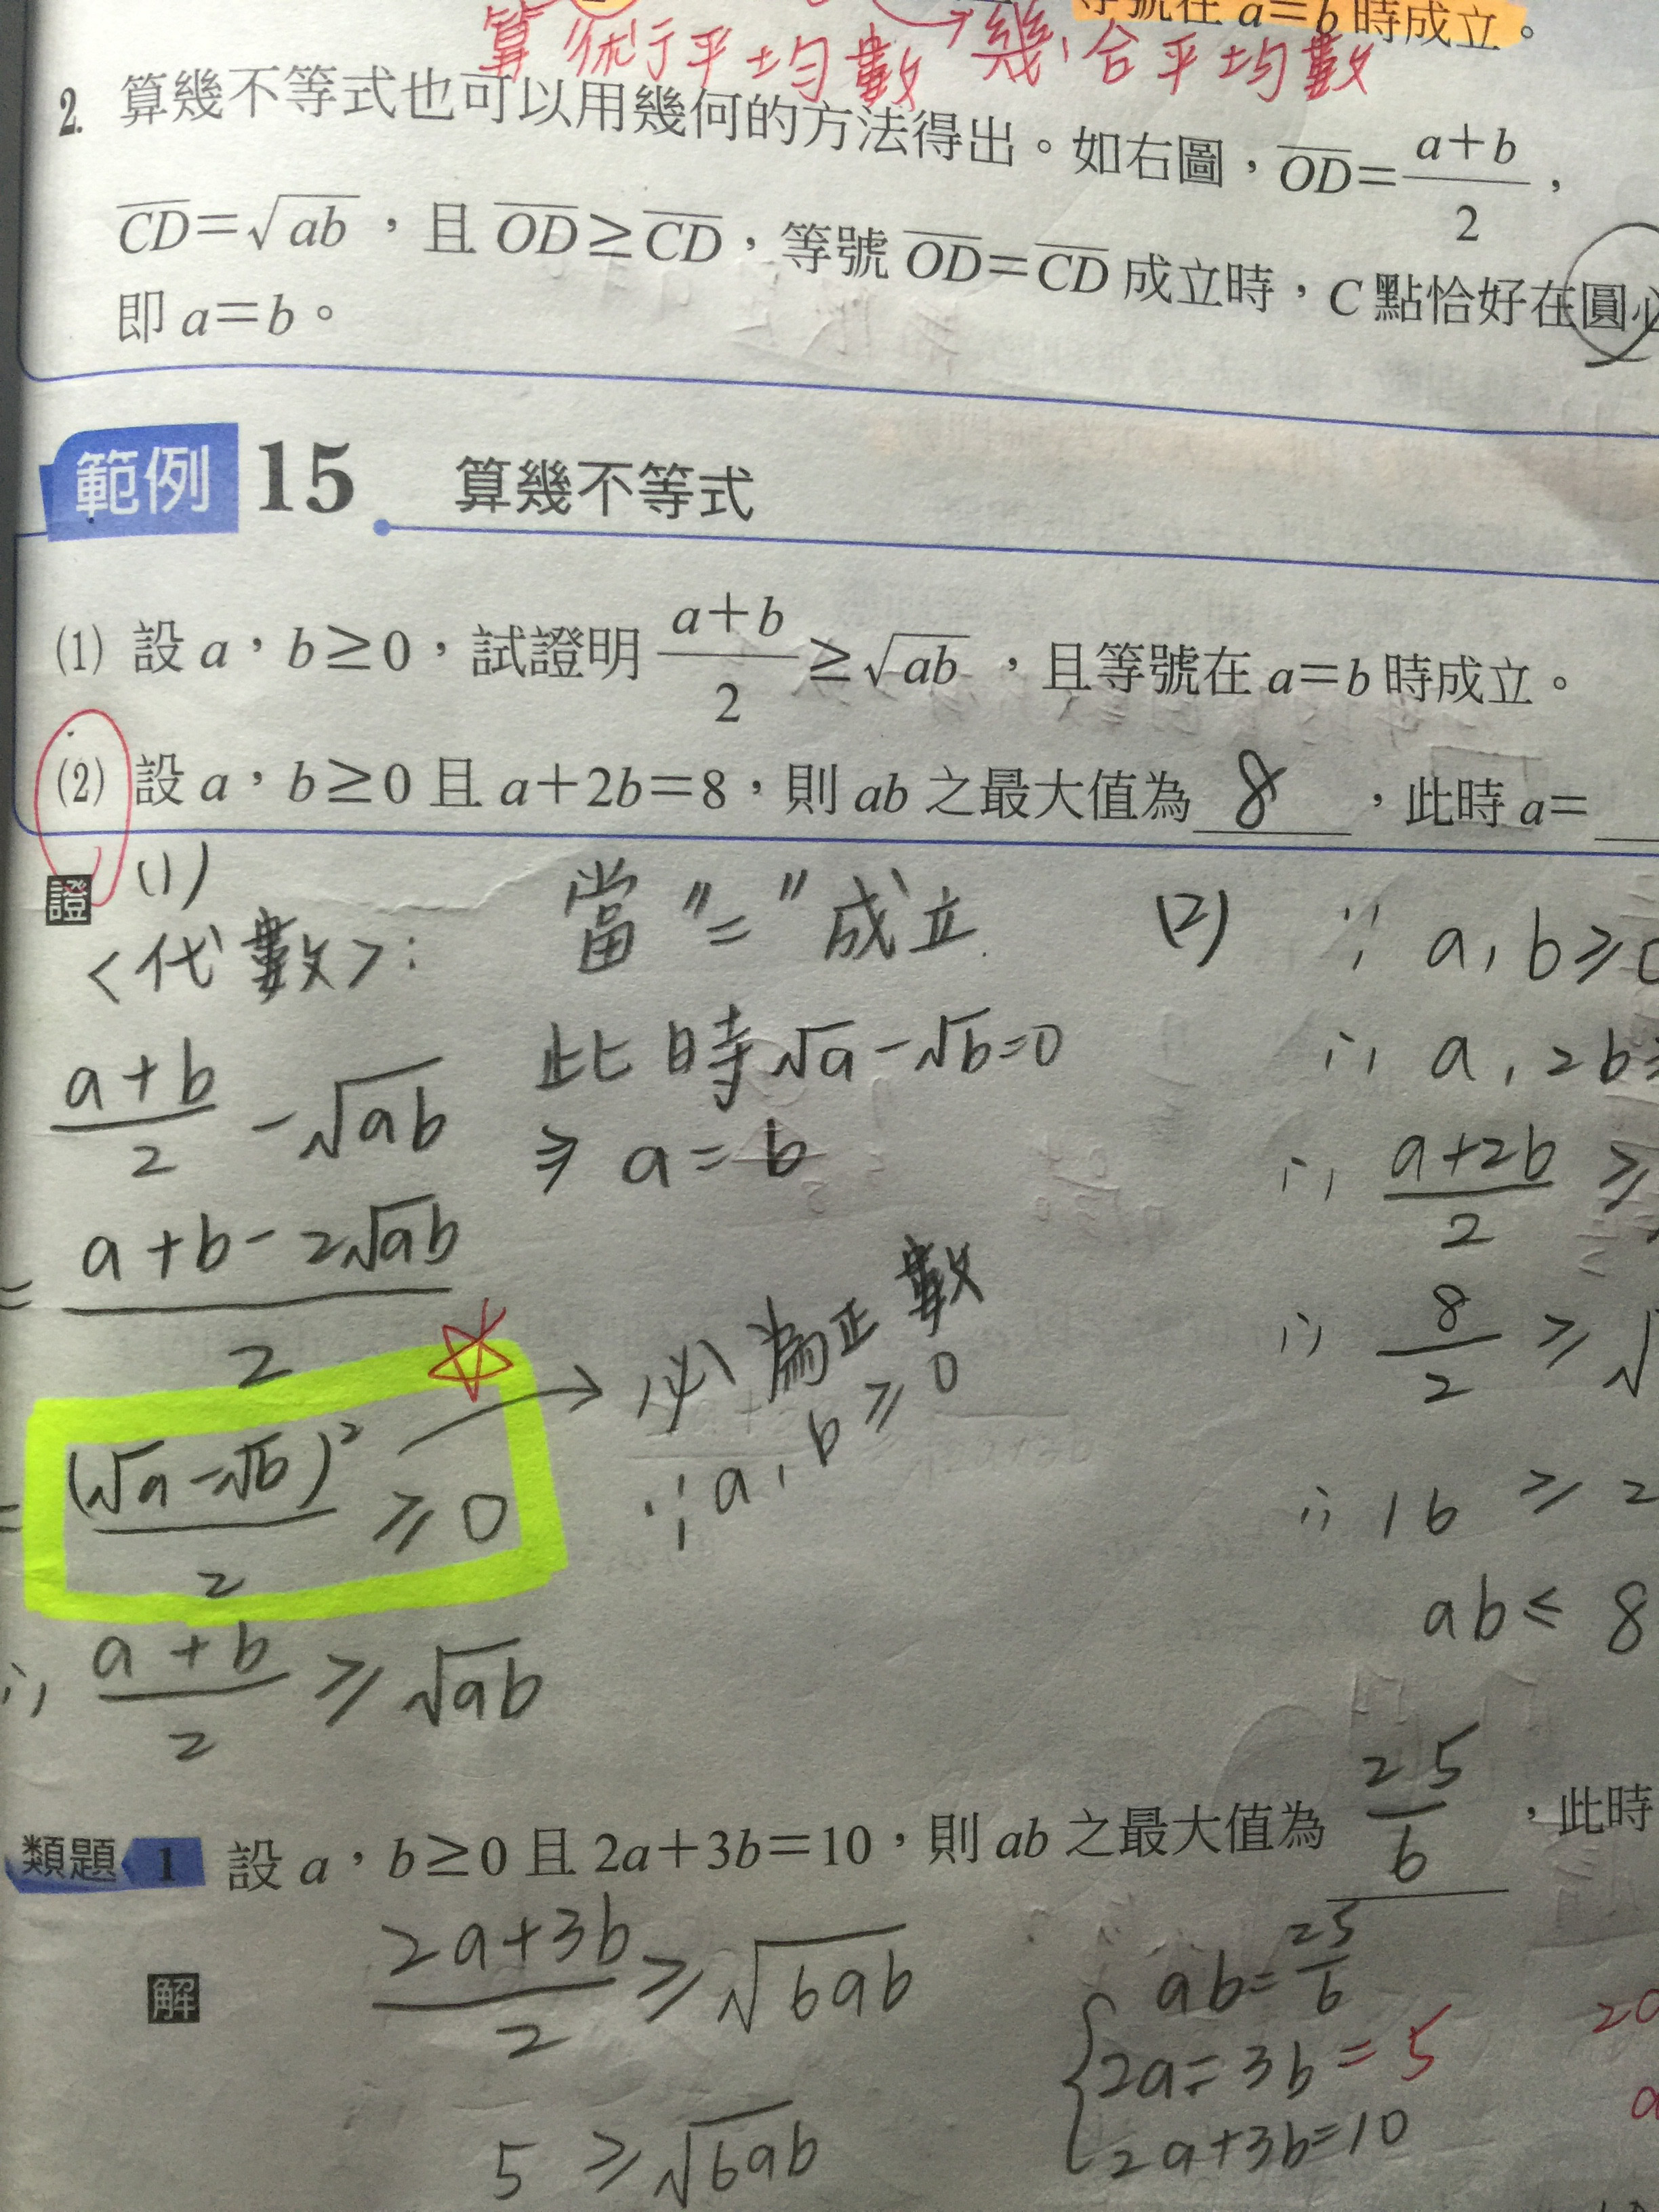 等號在 a=b 時成立。
算術平均數 → 幾合平均數
2. 算幾不等式也可以用幾何的方法得出。如右圖，OD=(a+b)/2，
CD=√ab，且 OD≥CD，等號 OD=CD 成立時，C 點恰好在圓心
即 a=b。
範例 15 算幾不等式
(1) 設 a，b≥0，試證明 (a+b)/2 ≥ √ab，且等號在 a=b 時成立。
(2) 設 a，b≥0 且 a+2b=8，則 ab 之最大值為 8，此時 a=
證 (1)
<代數>:
(a+b)/2 - √ab
= (a+b-2√ab)/2
= (√a-√b)²/2 ≥ 0
∴ (a+b)/2 ≥ √ab
當 "=" 成立
此時 √a-√b=0
⇒ a=b
→ 必為正數
∵ a, b ≥ 0
(2) ∵ a, b ≥ 0
∴ a, 2b ≥
∴ (a+2b)/2 ≥
∴ 8/2 ≥ √
∴ 16 ≥ 2
ab ≤ 8
類題 1 設 a，b≥0 且 2a+3b=10，則 ab 之最大值為 25/6，此時
解 (2a+3b)/2 ≥ √6ab
5 ≥ √6ab
ab=25/6
2a=3b=5
2a+3b=10